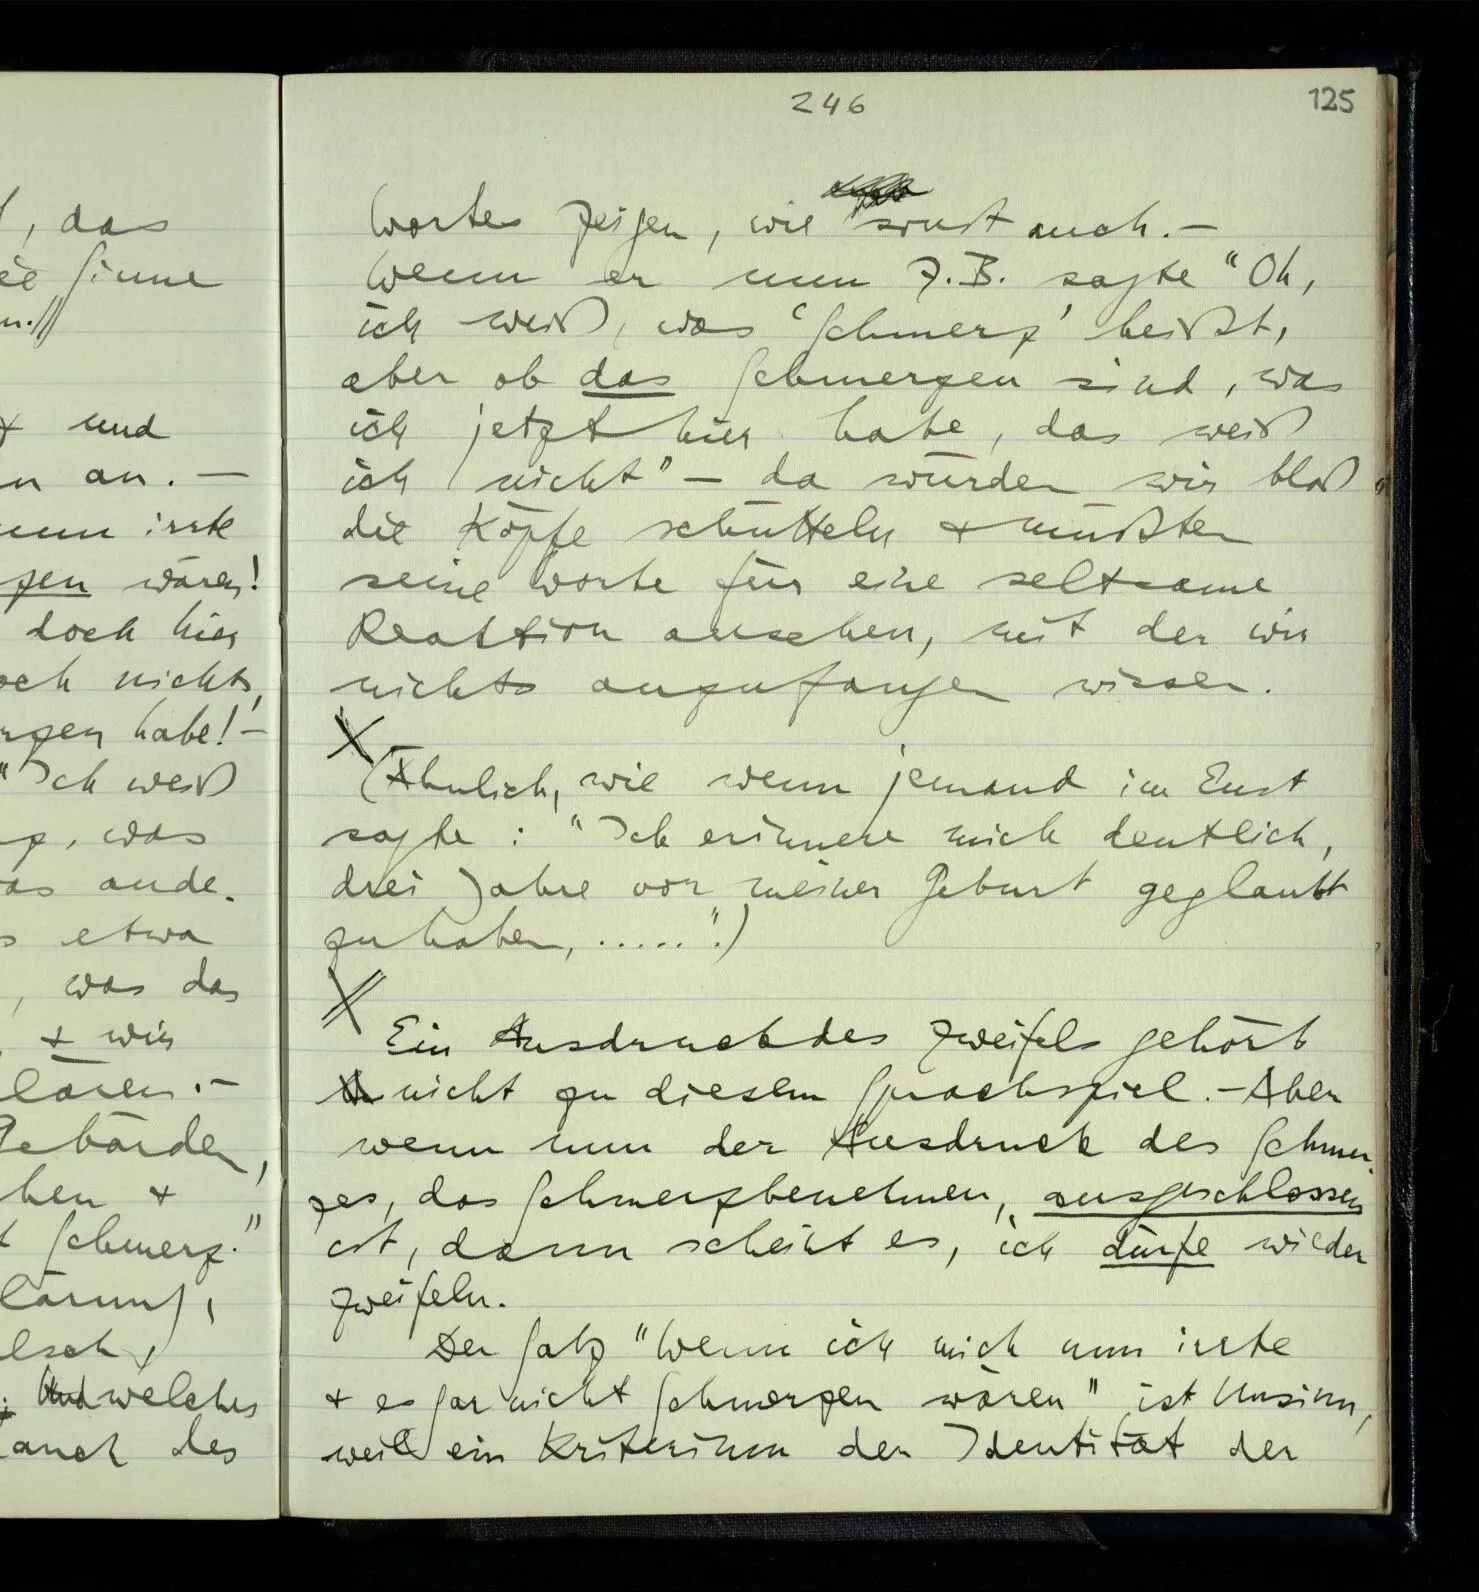 246
125
, das
Sinne
n.//
+ und
n an. —
nun irrte
zen wären!
doch hier
och nichts,
rzen habe! —
"Ich weiß
, was
as ande-
s etwa
, was das
, + wir
lären. —
Gebärden,
hen +
t Schmerz."
lärung,
lsch,
welches
auch des
Wortes zeigen, wie sonst auch. —
Wenn er nun z.B. sagte "Oh,
ich weiß, was 'Schmerz' heißt,
aber ob das Schmerzen sind, was
ich jetzt hier habe, das weiß
ich nicht" — da würden wir bloß
die Köpfe schütteln + müßten
seine Worte für eine seltsame
Reaktion ansehen, mit der wir
nichts anzufangen wissen.
(Ähnlich, wie wenn jemand im Ernst
sagte : "Ich erinnere mich deutlich,
drei Jahre vor meiner Geburt geglaubt
zu haben, ....." .)
Ein Ausdruck des Zweifels gehört
nicht zu diesem Sprachspiel. — Aber
wenn nun der Ausdruck des Schmer-
zes, das Schmerzbenehmen, ausgeschlossen
ist, dann scheint es, ich dürfe wieder
zweifeln.
Der Satz "Wenn ich mich nun irrte
+ es gar nicht Schmerzen wären" ist Unsinn,
weil ein Kriterium der Identität der